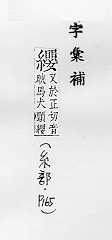 字彙補
纓又於正切音
映馬犬頸纓
(糸部·P165)